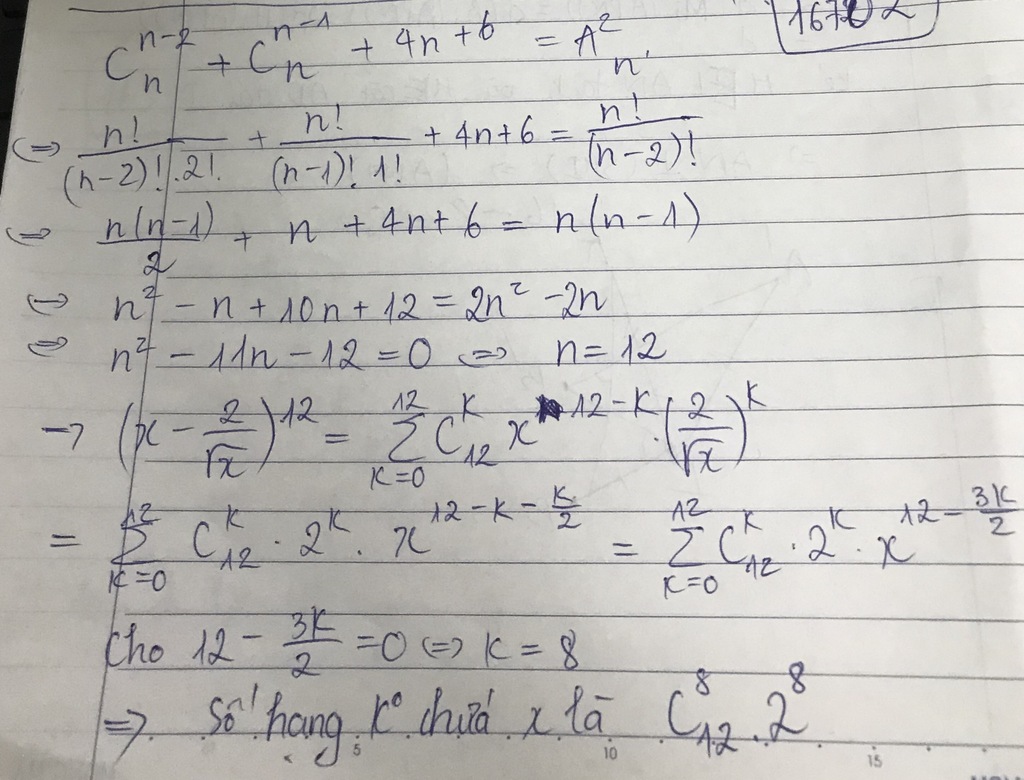 C_n^{n-2} + C_n^{n-1} + 4n + 6 = A_n^2
⇔ n!/((n-2)!.2!) + n!/((n-1)! 1!) + 4n+6 = n!/(n-2)!
⇔ n(n-1)/2 + n + 4n + 6 = n(n-1)
⇔ n² - n + 10n + 12 = 2n² - 2n
⇔ n² - 11n - 12 = 0 ⇔ n = 12
→ (x - 2/√x)^{12} = Σ_{K=0}^{12} C_{12}^K x^{12-K} . (2/√x)^K
= Σ_{K=0}^{12} C_{12}^K . 2^K . x^{12-K-K/2} = Σ_{K=0}^{12} C_{12}^K . 2^K . x^{12-3K/2}
Cho 12 - 3K/2 = 0 ⇔ K = 8
⇒ Số hạng K° chứa x là C_{12}^8 . 2^8
5 10 15